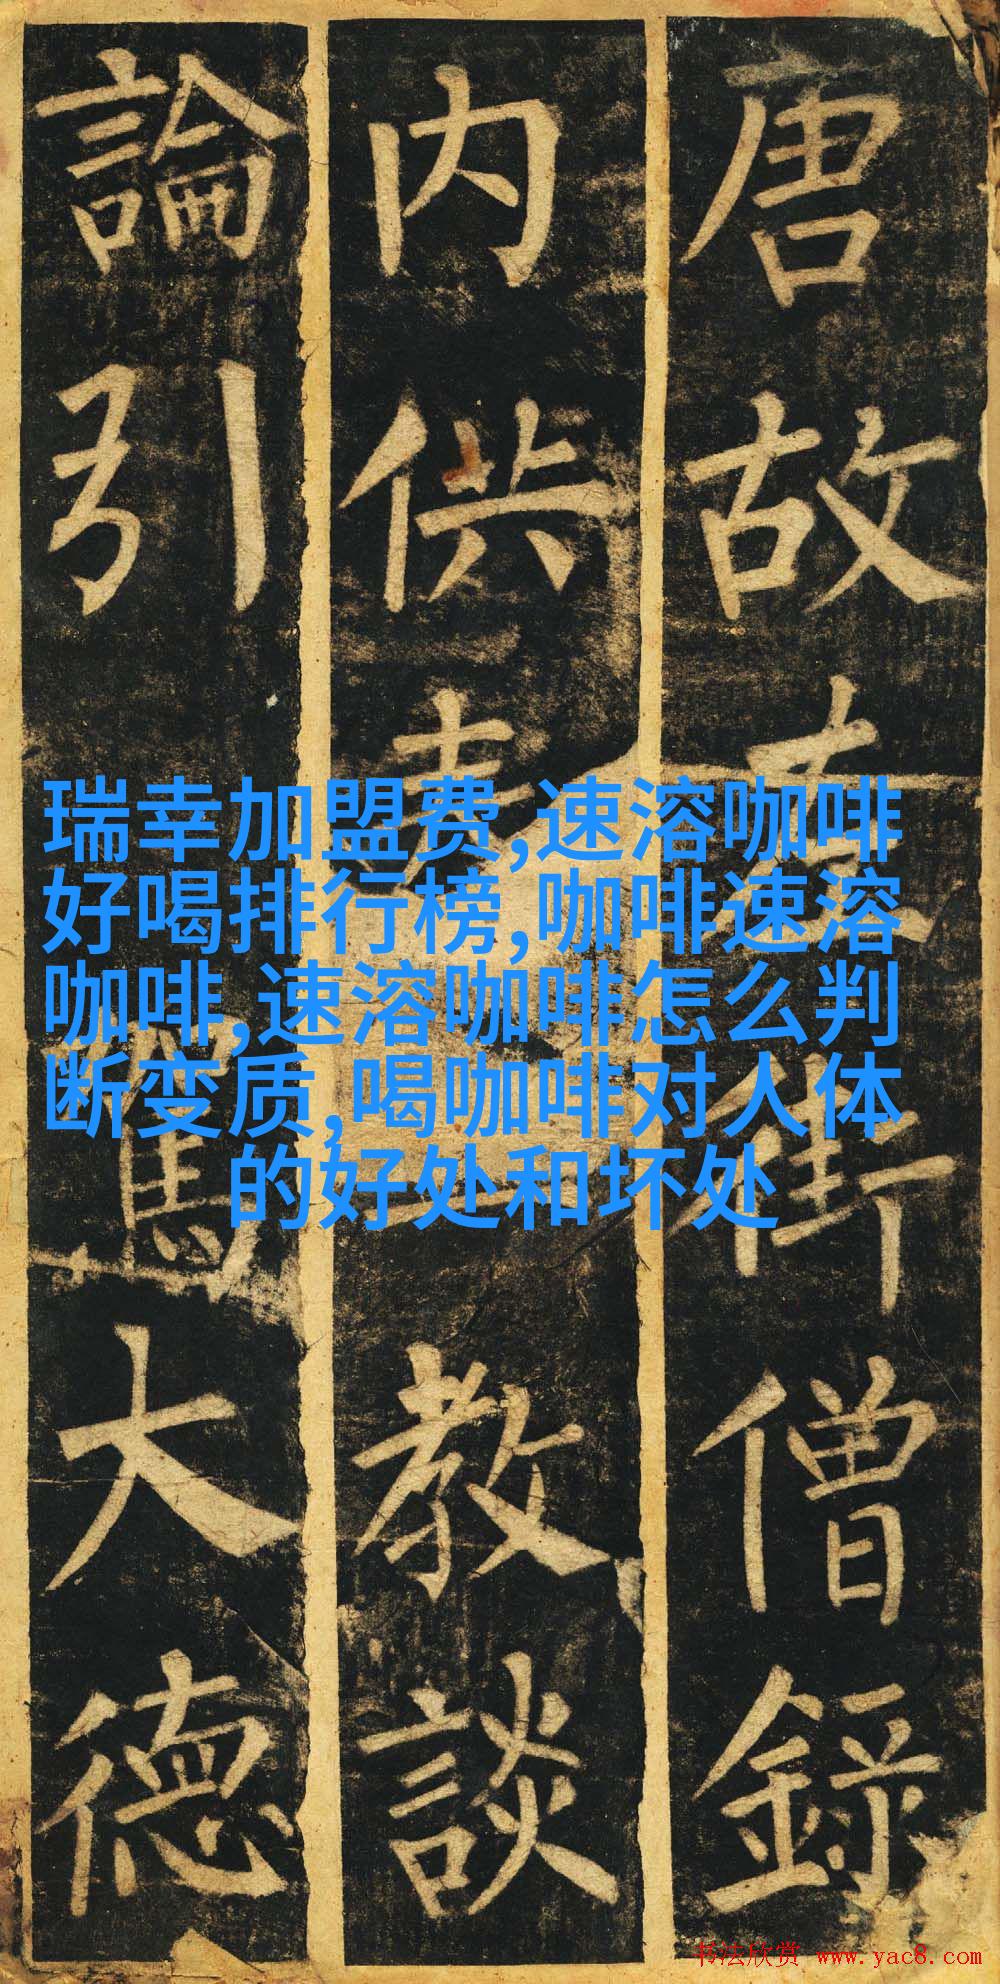 唐故左街僧錄
内供奉教談
論引駕大德
瑞幸加盟费,速溶咖啡
好喝排行榜,咖啡速溶
咖啡,速溶咖啡怎么判
断变质,喝咖啡对人体
的好处和坏处
书法欣赏 www.yac8.com